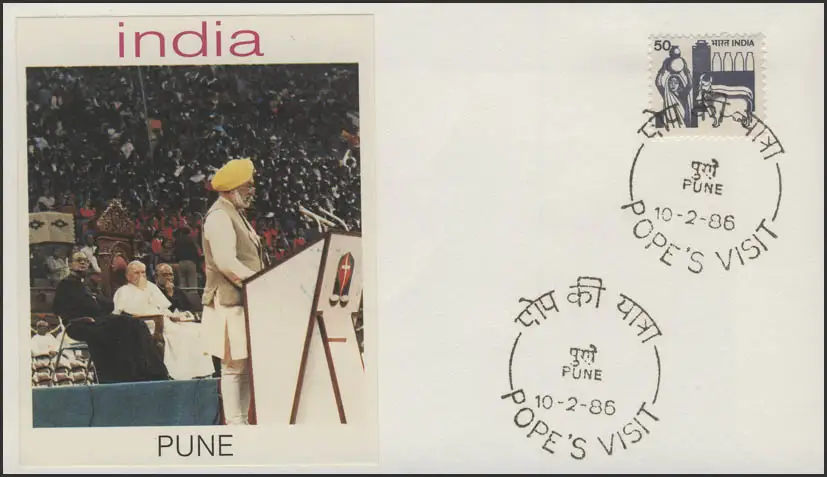 india
PUNE
50 भारत INDIA
पोप की यात्रा
पुणे
PUNE
10-2-86
POPE'S VISIT
पोप की यात्रा
पुणे
PUNE
10-2-86
POPE'S VISIT